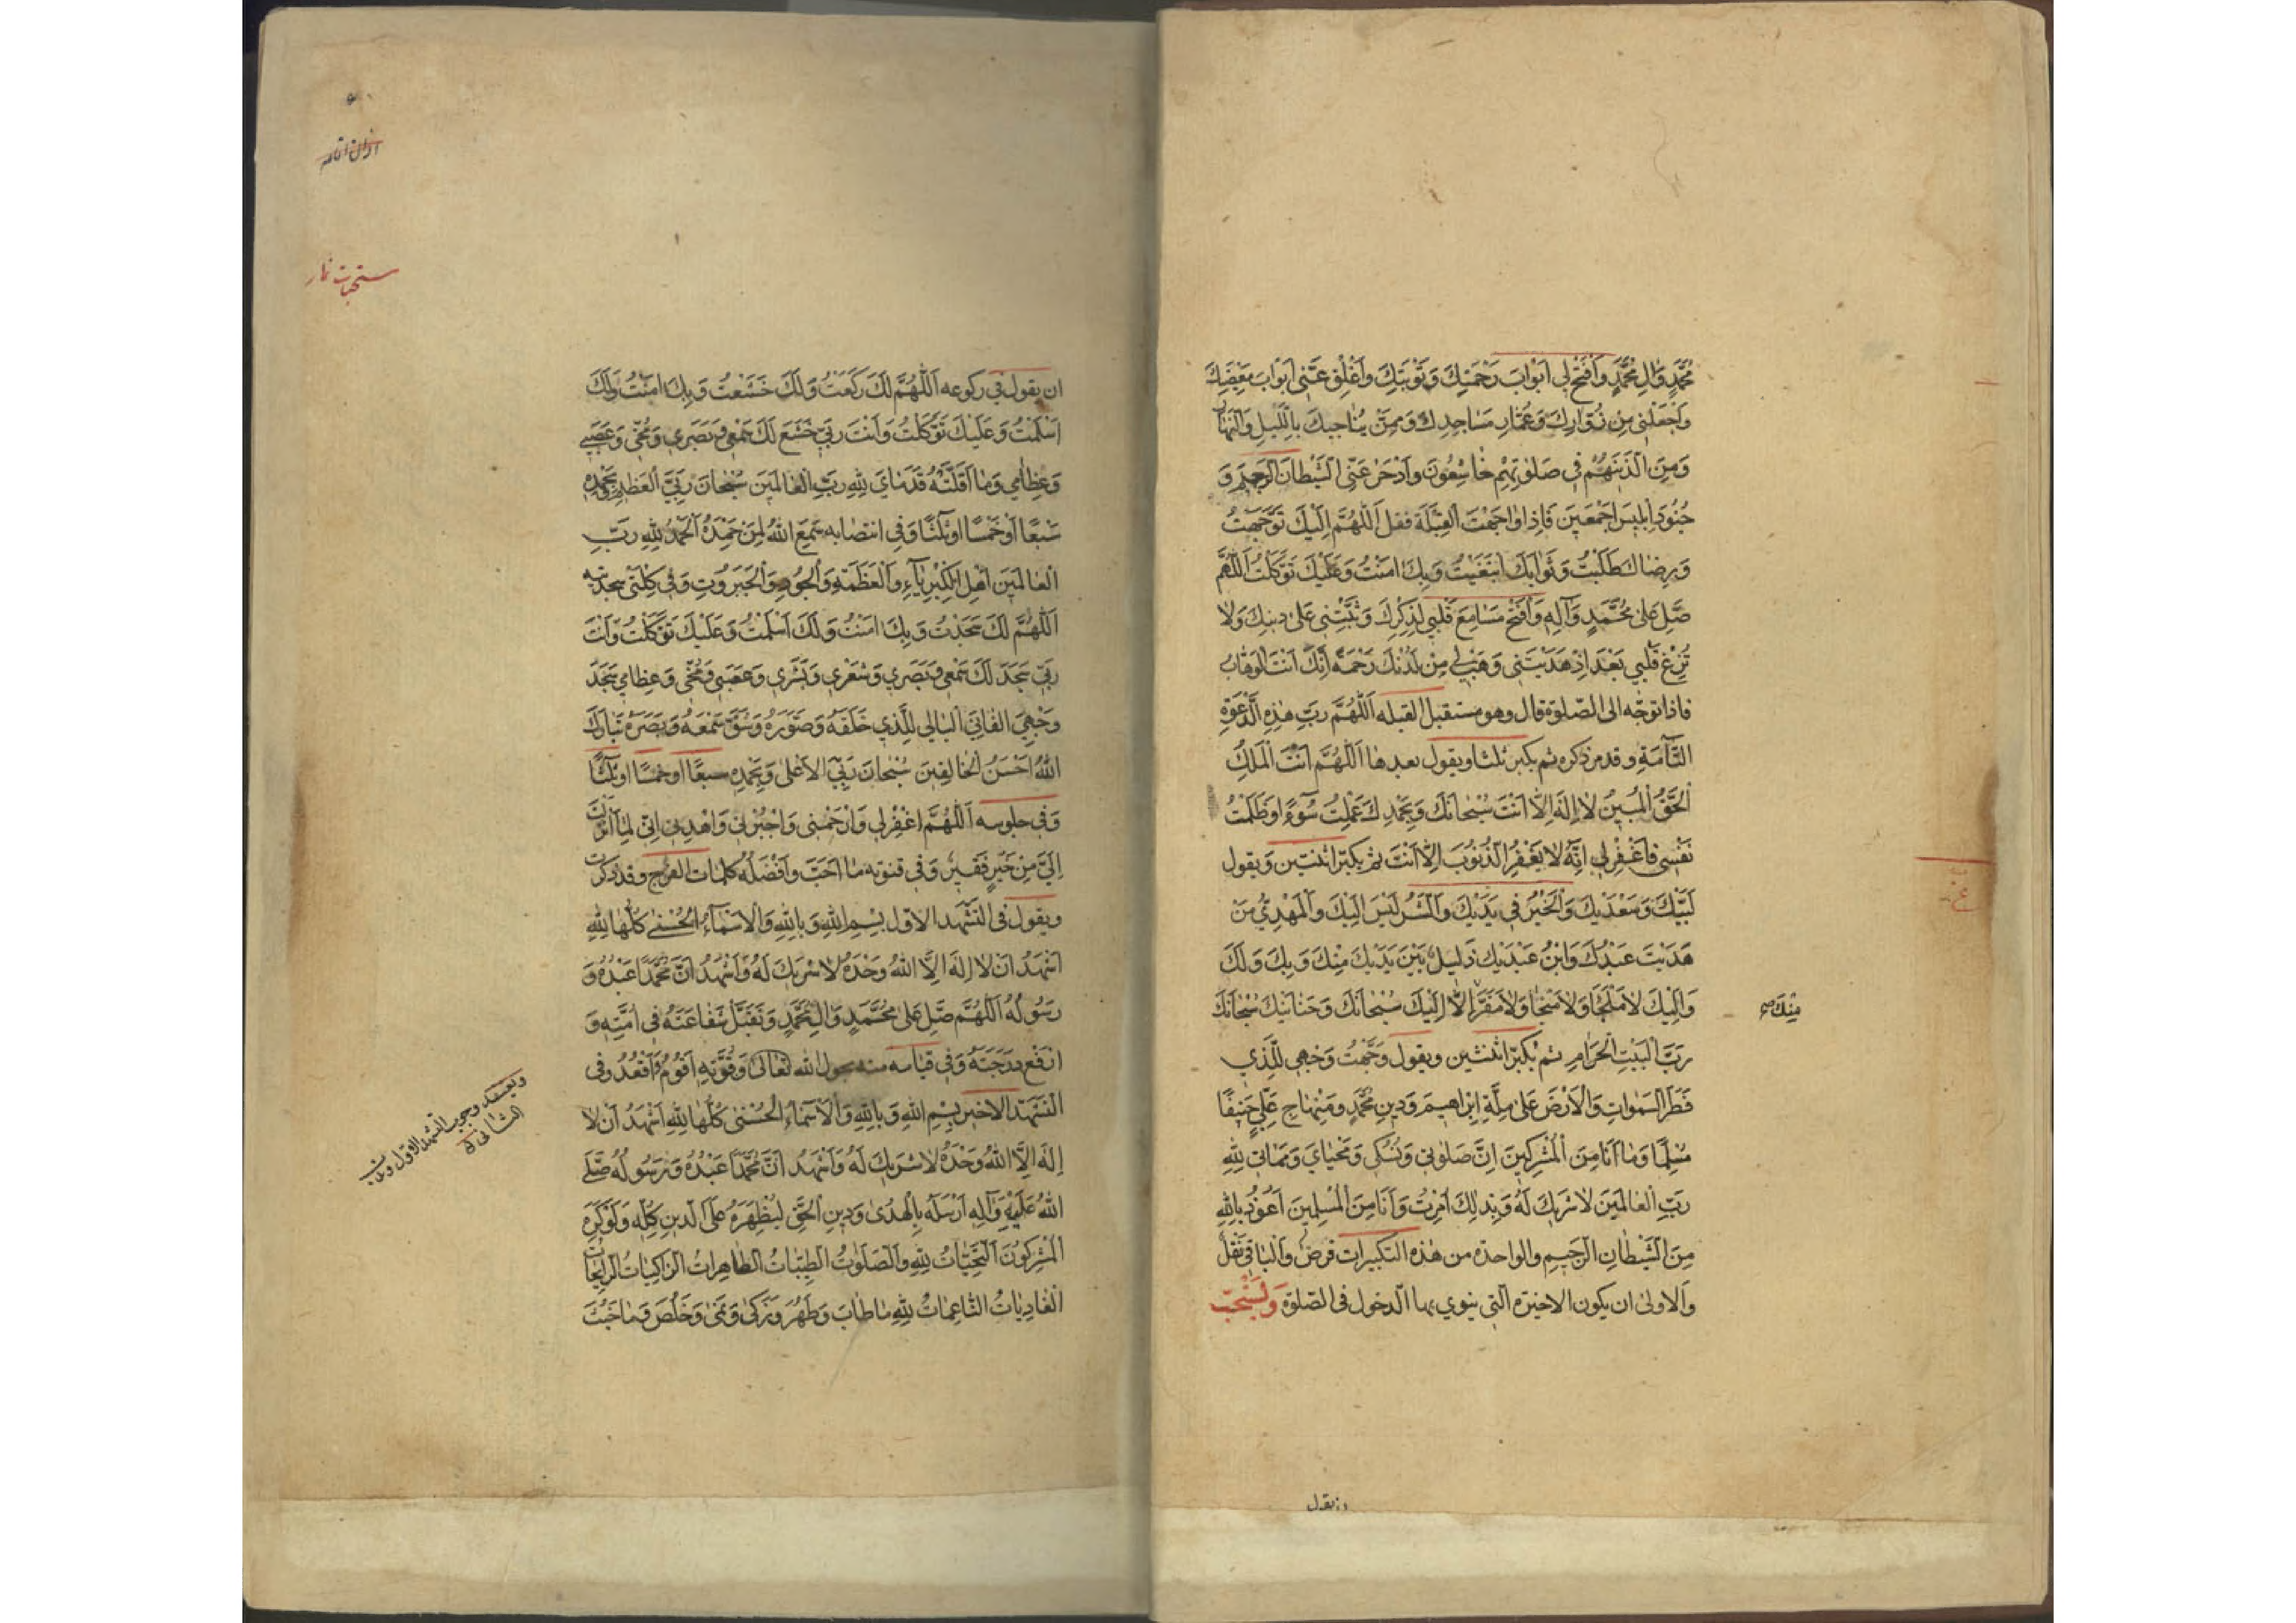 مُحَمَّدٍ وَالِ مُحَمَّدٍ وَافْتَحْ لِي اَبْوَابَ رَحْمَتِكَ وَتَوْبَتِكَ وَاَغْلِقْ عَنِّي اَبْوَابَ مَعْصِيَتِكَ
وَاجْعَلْنِي مِنْ زُوَّارِكَ وَعُمَّارِ مَسَاجِدِكَ وَمِمَّنْ يُنَاجِيكَ بِاللَّيْلِ وَالنَّهَارِ
وَمِنَ الَّذِينَ هُمْ فِي صَلٰوتِهِمْ خَاشِعُونَ وَادْحَرْ عَنِّي الشَّيْطَانَ الرَّجِيمَ وَ
جُنُودَ اِبْلِيسَ اَجْمَعِينَ فَاِذَا وَاجَهْتَ الْقِبْلَةَ فقل اَللّٰهُمَّ اِلَيْكَ تَوَجَّهْتُ
وَرِضَاكَ طَلَبْتُ وَثَوَابَكَ ابْتَغَيْتُ وَبِكَ اٰمَنْتُ وَعَلَيْكَ تَوَكَّلْتُ اَللّٰهُمَّ
صَلِّ عَلىٰ مُحَمَّدٍ وَآلِهِ وَافْتَحْ مَسَامِعَ قَلْبِي لِذِكْرِكَ وَثَبِّتْنِي عَلىٰ دِينِكَ وَلا
تُزِغْ قَلْبِي بَعْدَ اِذْ هَدَيْتَنِي وَهَبْ لِي مِنْ لَدُنْكَ رَحْمَةً اِنَّكَ اَنْتَ الْوَهَّابُ
فاذا توجّه الى الصّلوة قال وهو مستقبل القبله اَللّٰهُمَّ رَبَّ هٰذِهِ الدَّعْوَةِ
التَّآمَّةِ وقد مر ذكره ثم يكبر ثلثا ويقول بعدها اَللّٰهُمَّ اَنْتَ الْمَلِكُ
الْحَقُّ الْمُبِينُ لَا اِلٰهَ اِلَّا اَنْتَ سُبْحَانَكَ وَبِحَمْدِكَ عَمِلْتُ سُوءً وَظَلَمْتُ
نَفْسِي فَاغْفِرْ لِي اِنَّهُ لَا يَغْفِرُ الذُّنُوبَ اِلَّا اَنْتَ ثم يكبّر اثنتين ويقول
لَبَّيْكَ وَسَعْدَيْكَ وَالْخَيْرُ فِي يَدَيْكَ وَالشَّرُّ لَيْسَ اِلَيْكَ وَالْمَهْدِيُّ مَنْ
هَدَيْتَ عَبْدُكَ وَابْنُ عَبْدَيْكَ ذَلِيلٌ بَيْنَ يَدَيْكَ مِنْكَ وَبِكَ وَلَكَ
وَاِلَيْكَ لَا مَلْجَأَ وَلَا مَنْجَا وَلَا مَفَرَّ اِلَّا اِلَيْكَ سُبْحَانَكَ وَحَنَانَيْكَ سُبْحَانَكَ
مِنْكَ صح
رَبَّ الْبَيْتِ الْحَرَامِ ثم يكبّر اثنتين ويقول وَجَّهْتُ وَجْهِي لِلَّذِي
فَطَرَ السَّمٰوَاتِ وَالْاَرْضَ عَلىٰ مِلَّةِ اِبْرَاهِيمَ وَدِينِ مُحَمَّدٍ وَمِنْهَاجِ عَلِيٍّ حَنِيفًا
مُسْلِمًا وَمَا اَنَا مِنَ الْمُشْرِكِينَ اِنَّ صَلٰوتِي وَنُسُكِي وَمَحْيَايَ وَمَمَاتِي لِلّٰهِ
رَبِّ الْعَالَمِينَ لَا شَرِيكَ لَهُ وَبِذٰلِكَ اُمِرْتُ وَاَنَا مِنَ الْمُسْلِمِينَ اَعُوذُ بِاللهِ
مِنَ الشَّيْطَانِ الرَّجِيمِ والواحدة من هذه التكبيرات فرض والباقي نفل
والاولى ان يكون الاخيرة الّتي ينوي بها الدّخول في الصّلوة وَيُسْتَحَبّ
ان يقول
اذان اقامه
مستحبات نماز
ان يقول في ركوعه اَللّٰهُمَّ لَكَ رَكَعْتُ وَلَكَ خَشَعْتُ وَبِكَ اٰمَنْتُ وَلَكَ
اَسْلَمْتُ وَعَلَيْكَ تَوَكَّلْتُ وَاَنْتَ رَبِّي خَشَعَ لَكَ سَمْعِي وَبَصَرِي وَمُخِّي وَعَصَبِي
وَعِظَامِي وَمَا اَقَلَّتْهُ قَدَمَايَ لِلّٰهِ رَبِّ الْعَالَمِينَ سُبْحَانَ رَبِّيَ الْعَظِيمِ وَبِحَمْدِهِ
سَبْعًا اَوْ خَمْسًا اَوْ ثَلٰثًا وَفِي انتصابه سَمِعَ اللهُ لِمَنْ حَمِدَهُ اَلْحَمْدُ لِلّٰهِ رَبِّ
الْعَالَمِينَ اَهْلِ الْكِبْرِيَآءِ وَالْعَظَمَةِ وَالْجُودِ وَالْجَبَرُوتِ وَفِي كلتى سجدتيه
اَللّٰهُمَّ لَكَ سَجَدْتُ وَبِكَ اٰمَنْتُ وَلَكَ اَسْلَمْتُ وَعَلَيْكَ تَوَكَّلْتُ وَاَنْتَ
رَبِّي سَجَدَ لَكَ سَمْعِي وَبَصَرِي وَشَعْرِي وَبَشَرِي وَعَصَبِي وَمُخِّي وَعِظَامِي سَجَدَ
وَجْهِيَ الْفَانِي الْبَالِي لِلَّذِي خَلَقَهُ وَصَوَّرَهُ وَشَقَّ سَمْعَهُ وَبَصَرَهُ تَبَارَكَ
اللهُ اَحْسَنُ الْخَالِقِينَ سُبْحَانَ رَبِّيَ الْاَعْلىٰ وَبِحَمْدِهِ سبعًا او خمسًا او ثلثًا
وَفي جلوسه اَللّٰهُمَّ اغْفِرْ لِي وَارْحَمْنِي وَاجْبُرْنِي وَاهْدِنِي اِنِّي لِمَا اَنْزَلْتَ
اِلَيَّ مِنْ خَيْرٍ فَقِيرٌ وَفي قنوته ما احَبّ وافضله كلمات الفرج وقد ذكرت
ويقول في التشهد الاوّل بِسْمِ اللهِ وَبِاللهِ وَالْاَسْمَآءُ الْحُسْنىٰ كُلُّهَا لِلّٰهِ
اَشْهَدُ اَنْ لَا اِلٰهَ اِلَّا اللهُ وَحْدَهُ لَا شَرِيكَ لَهُ وَاَشْهَدُ اَنَّ مُحَمَّدًا عَبْدُهُ وَ
رَسُولُهُ اَللّٰهُمَّ صَلِّ عَلىٰ مُحَمَّدٍ وَالِ مُحَمَّدٍ وَتَقَبَّلْ شَفَاعَتَهُ فِي اُمَّتِهِ وَ
ارْفَعْ دَرَجَتَهُ وَفِي قيامه منه بحول الله تعالىٰ وَقُوَّتِهِ اَقُومُ وَاَقْعُدُ وفي
التشهّد الاخير بِسْمِ اللهِ وَبِاللهِ وَالْاَسْمَاءُ الْحُسْنىٰ كُلُّهَا لِلّٰهِ اَشْهَدُ اَنْ لَا
ويعتقد وجوب التشهد الاول وندب الثاني
اِلٰهَ اِلَّا اللهُ وَحْدَهُ لَا شَرِيكَ لَهُ وَاَشْهَدُ اَنَّ مُحَمَّدًا عَبْدُهُ وَرَسُولُهُ صَلَّى
اللهُ عَلَيْهِ وَآلِهِ اَرْسَلَهُ بِالْهُدىٰ وَدِينِ الْحَقِّ لِيُظْهِرَهُ عَلَى الدِّينِ كُلِّهِ وَلَوْ كَرِهَ
الْمُشْرِكُونَ اَلتَّحِيَّاتُ لِلّٰهِ وَالصَّلَوٰتُ الطَّيِّبَاتُ الطَّاهِرَاتُ الزَّاكِيَاتُ الرَّائِحَاتُ
الْغَادِيَاتُ النَّاعِمَاتُ لِلّٰهِ مَا طَابَ وَطَهُرَ وَزَكىٰ وَنَمىٰ وَخَلُصَ وَمَا خَبُثَ